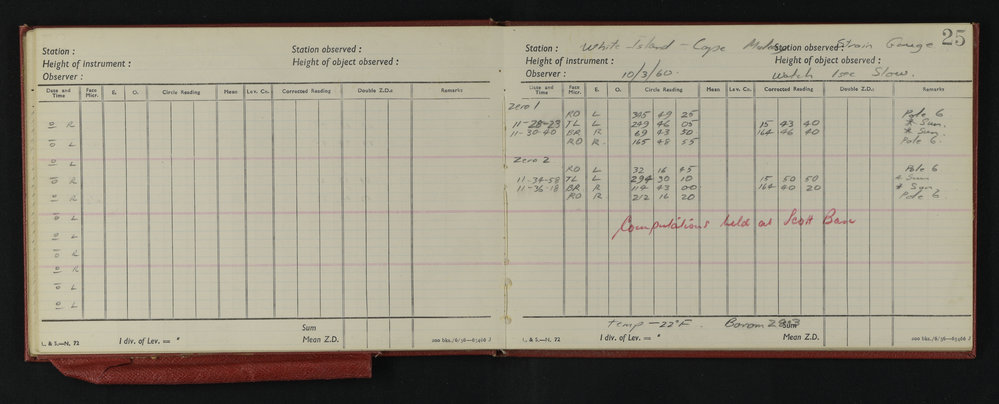 Station :
Station observed :
Height of instrument :
Height of object observed :
Observer :
Date and Time Face Micr. E. O. Circle Reading Mean Lev. Cn. Corrected Reading Double Z.D.s Remarks
R
L
L
R
R
L
L
R
R
L
L
Sum
L. & S.—N. 72 1 div. of Lev. = " Mean Z.D. 200 bks./6/56—65466 J
25
Station : White Island - Cape Station observed : Strain Gauge
Height of instrument : Height of object observed :
Observer : 10/3/60. Watch 1sec Slow.
Date and Time Face Micr. E. O. Circle Reading Mean Lev. Cn. Corrected Reading Double Z.D.s Remarks
Zero 1
RO L 345 49 25 Pole 6
11-28-23 TL L 249 46 05 15 43 40 * Sun.
11-30-40 BR R 69 43 50 164 46 40 * Sun.
RO R. 165 48 55 Pole 6.
Zero 2
RO L 32 16 45 Pole 6
11-34-58 TL L 294 30 10 15 50 50 * Sun
11-36-18 BR R 114 43 00 164 40 20 * Sun.
RO R. 212 16 20 Pole 6.
Computations held at Scott Base
temp -22°F. Barom Sum
L. & S.—N. 72 1 div. of Lev. = " Mean Z.D. 200 bks./6/56—65466 J